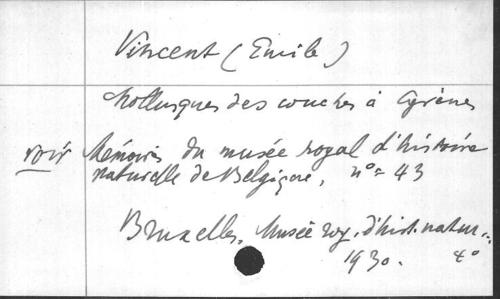 Vincent (Emile)
Mollusques des couches à Cyrènes
voir Mémoires du musée royal d'histoire
naturelle de Belgique, n° = 43
Bruxelles, Musée roy. d'hist. natur..
1930. 4°